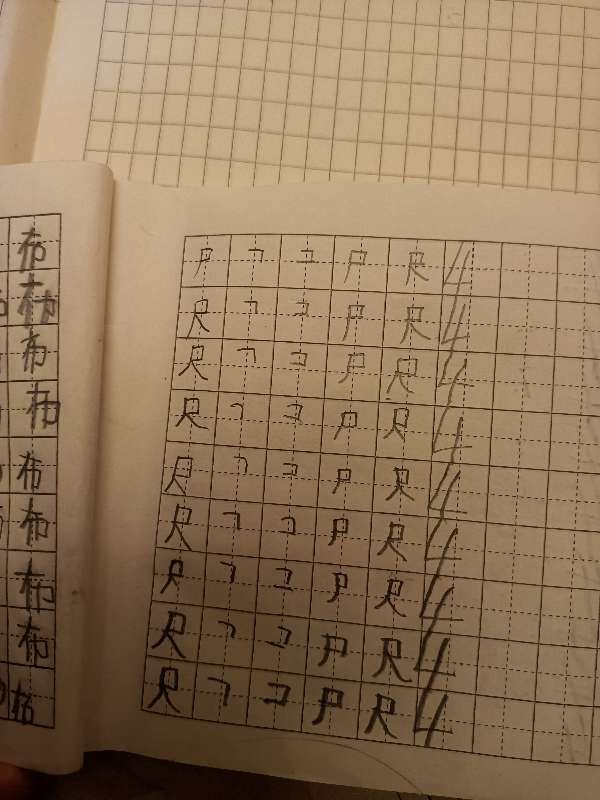 布
布
布
布
布
布
布
布
尸 ㇕ コ 尸 尺 4
尺 ㇕ コ 尸 尺 4
尺 ㇕ コ 尸 尺 4
尺 ㇕ コ 尸 尺 4
尺 ㇕ コ 尸 尺 4
尺 ㇕ コ 尸 尺 4
尺 ㇕ コ 尸 尺 4
尺 ㇕ コ 尸 尺 4
尺 ㇕ コ 尸 尺 4